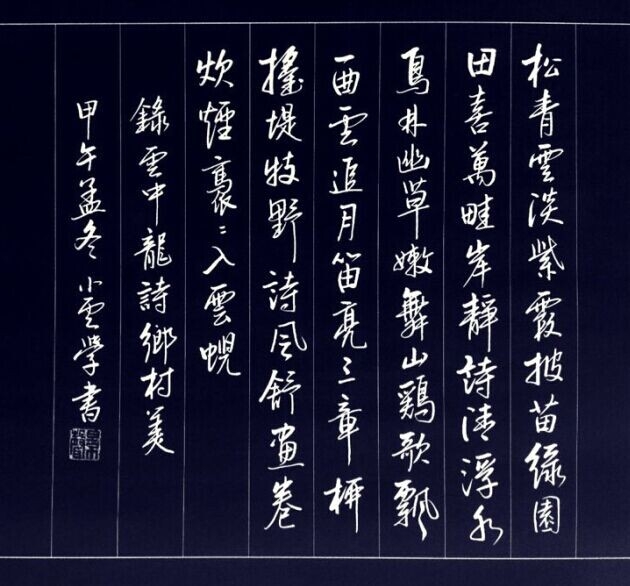 松青雲淡紫霞披苗綠園
田喜萬畦岸靜詩清浮水
鳥林幽草嫩舞山鷄歌飄
曲雲追月笛亮三章柳
搖堤牧野詩風舒畫卷
炊煙裊裊入雲
錄雲中龍詩鄉村美
甲午孟冬小雲學書